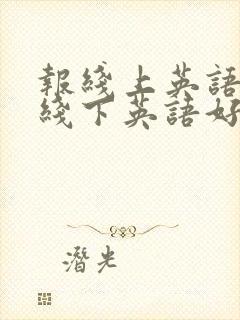 報綫上英語
綫下英語好
潛光